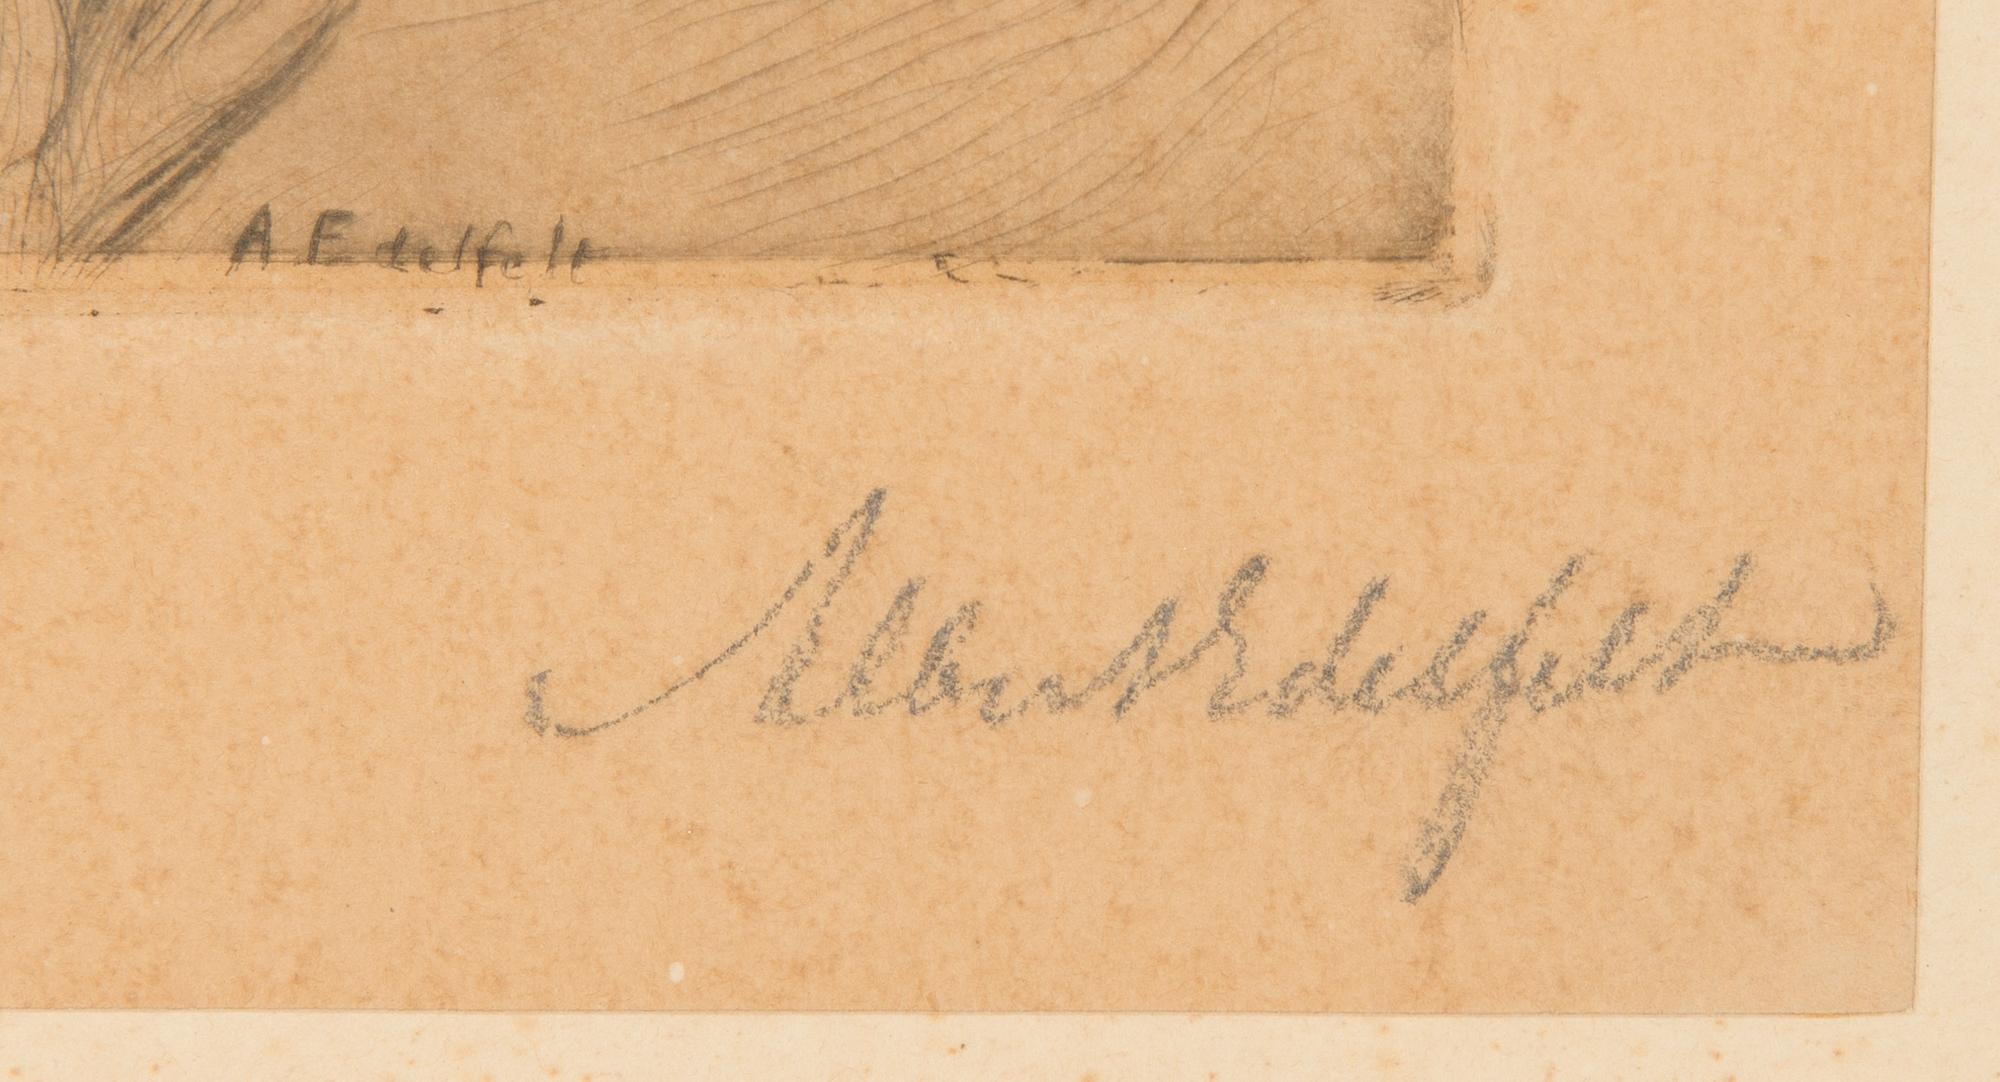 A Edelfelt
Albert Edelfelt